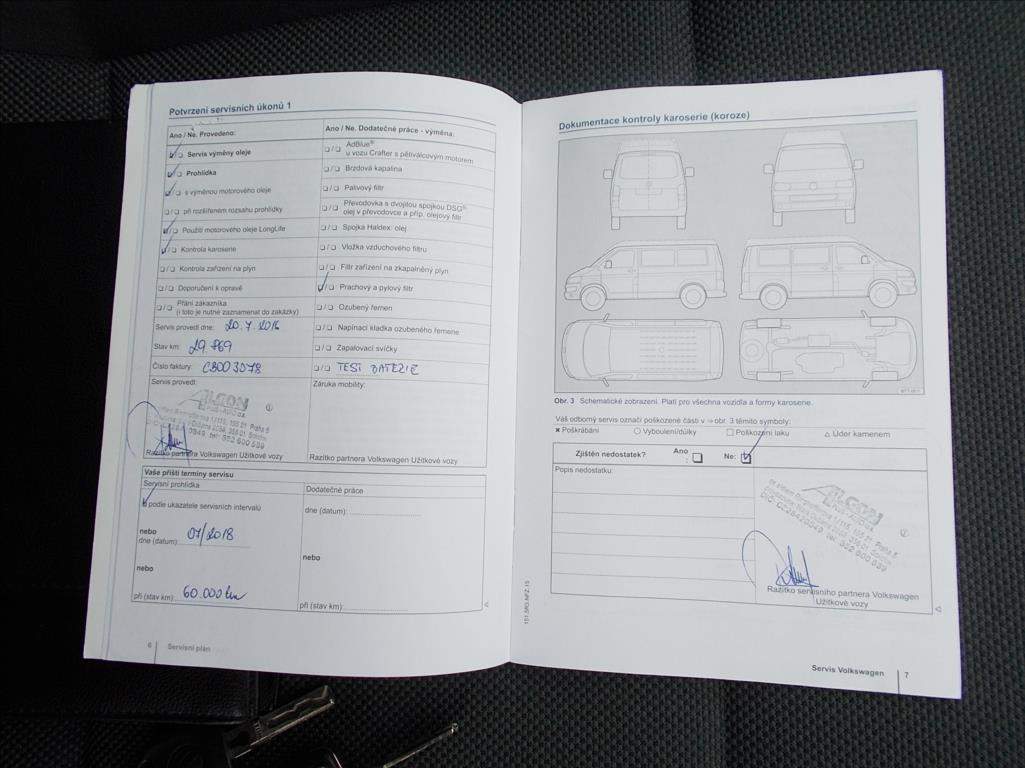 Potvrzení servisních úkonů 1
Ano / Ne. Provedeno:
Servis výměny oleje
Prohlídka
s výměnou motorového oleje
při rozšířeném rozsahu prohlídky
Použití motorového oleje LongLife
Kontrola karoserie
Kontrola zařízení na plyn
Doporučení k opravě
Přání zákazníka
(i toto je nutné zaznamenat do zakázky)
Servis provedl dne: 20.7.2016
Stav km: 29.869
Číslo faktury: CB003078
Servis provedl:
ALGON
PLUS-AUTO a.s.
Razítko partnera Volkswagen Užitkové vozy
Ano / Ne. Dodatečné práce - výměna:
AdBlue®
u vozu Crafter s pětiválcovým motorem
Brzdová kapalina
Palivový filtr
Převodovka s dvojitou spojkou DSG®,
olej v převodovce a příp. olejový filtr
Spojka Haldex: olej
Vložka vzduchového filtru
Filtr zařízení na zkapalněný plyn
Prachový a pylový filtr
Ozubený řemen
Napínací kladka ozubeného řemene
Zapalovací svíčky
TEST BATERIE
Záruka mobility:
Razítko partnera Volkswagen Užitkové vozy
Vaše příští termíny servisu
Servisní prohlídka
podle ukazatele servisních intervalů
nebo
dne (datum): 07/2018
nebo
při (stav km): 60.000 km
Dodatečné práce
dne (datum):
nebo
při (stav km):
6 Servisní plán
Dokumentace kontroly karoserie (koroze)
Obr. 3 Schematické zobrazení. Platí pro všechna vozidla a formy karoserie.
Váš odborný servis označí poškozené části v ⇒ obr. 3 těmito symboly:
Poškrábání
Vyboulení/důlky
Poškození laku
Úder kamenem
Zjištěn nedostatek? Ano Ne:
Popis nedostatku:
ALGON
PLUS-AUTO a.s.
Razítko servisního partnera Volkswagen
Užitkové vozy
151.5R3.NFZ.15
Servis Volkswagen 7